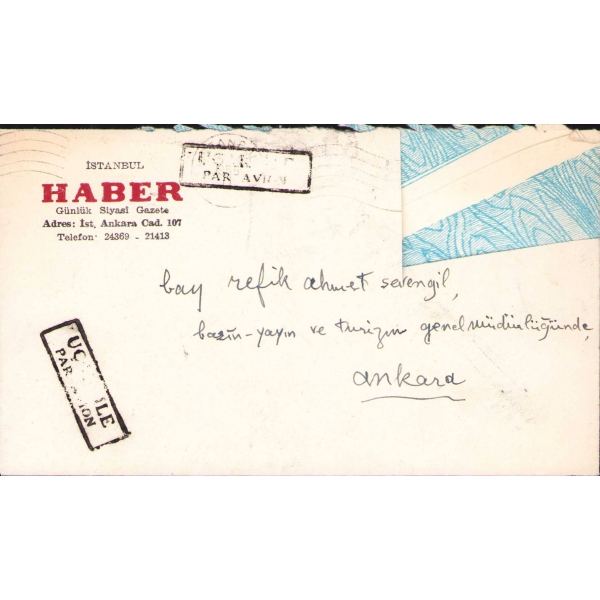 İSTANBUL
HABER
Günlük Siyasî Gazete
Adres: İst, Ankara Cad. 107
Telefon: 24369 - 21413
PAR AVION
bay refik ahmet sevengil,
basın-yayın ve turizm genel müdürlüğünde,
ankara
UÇ İLE
PAR AVION